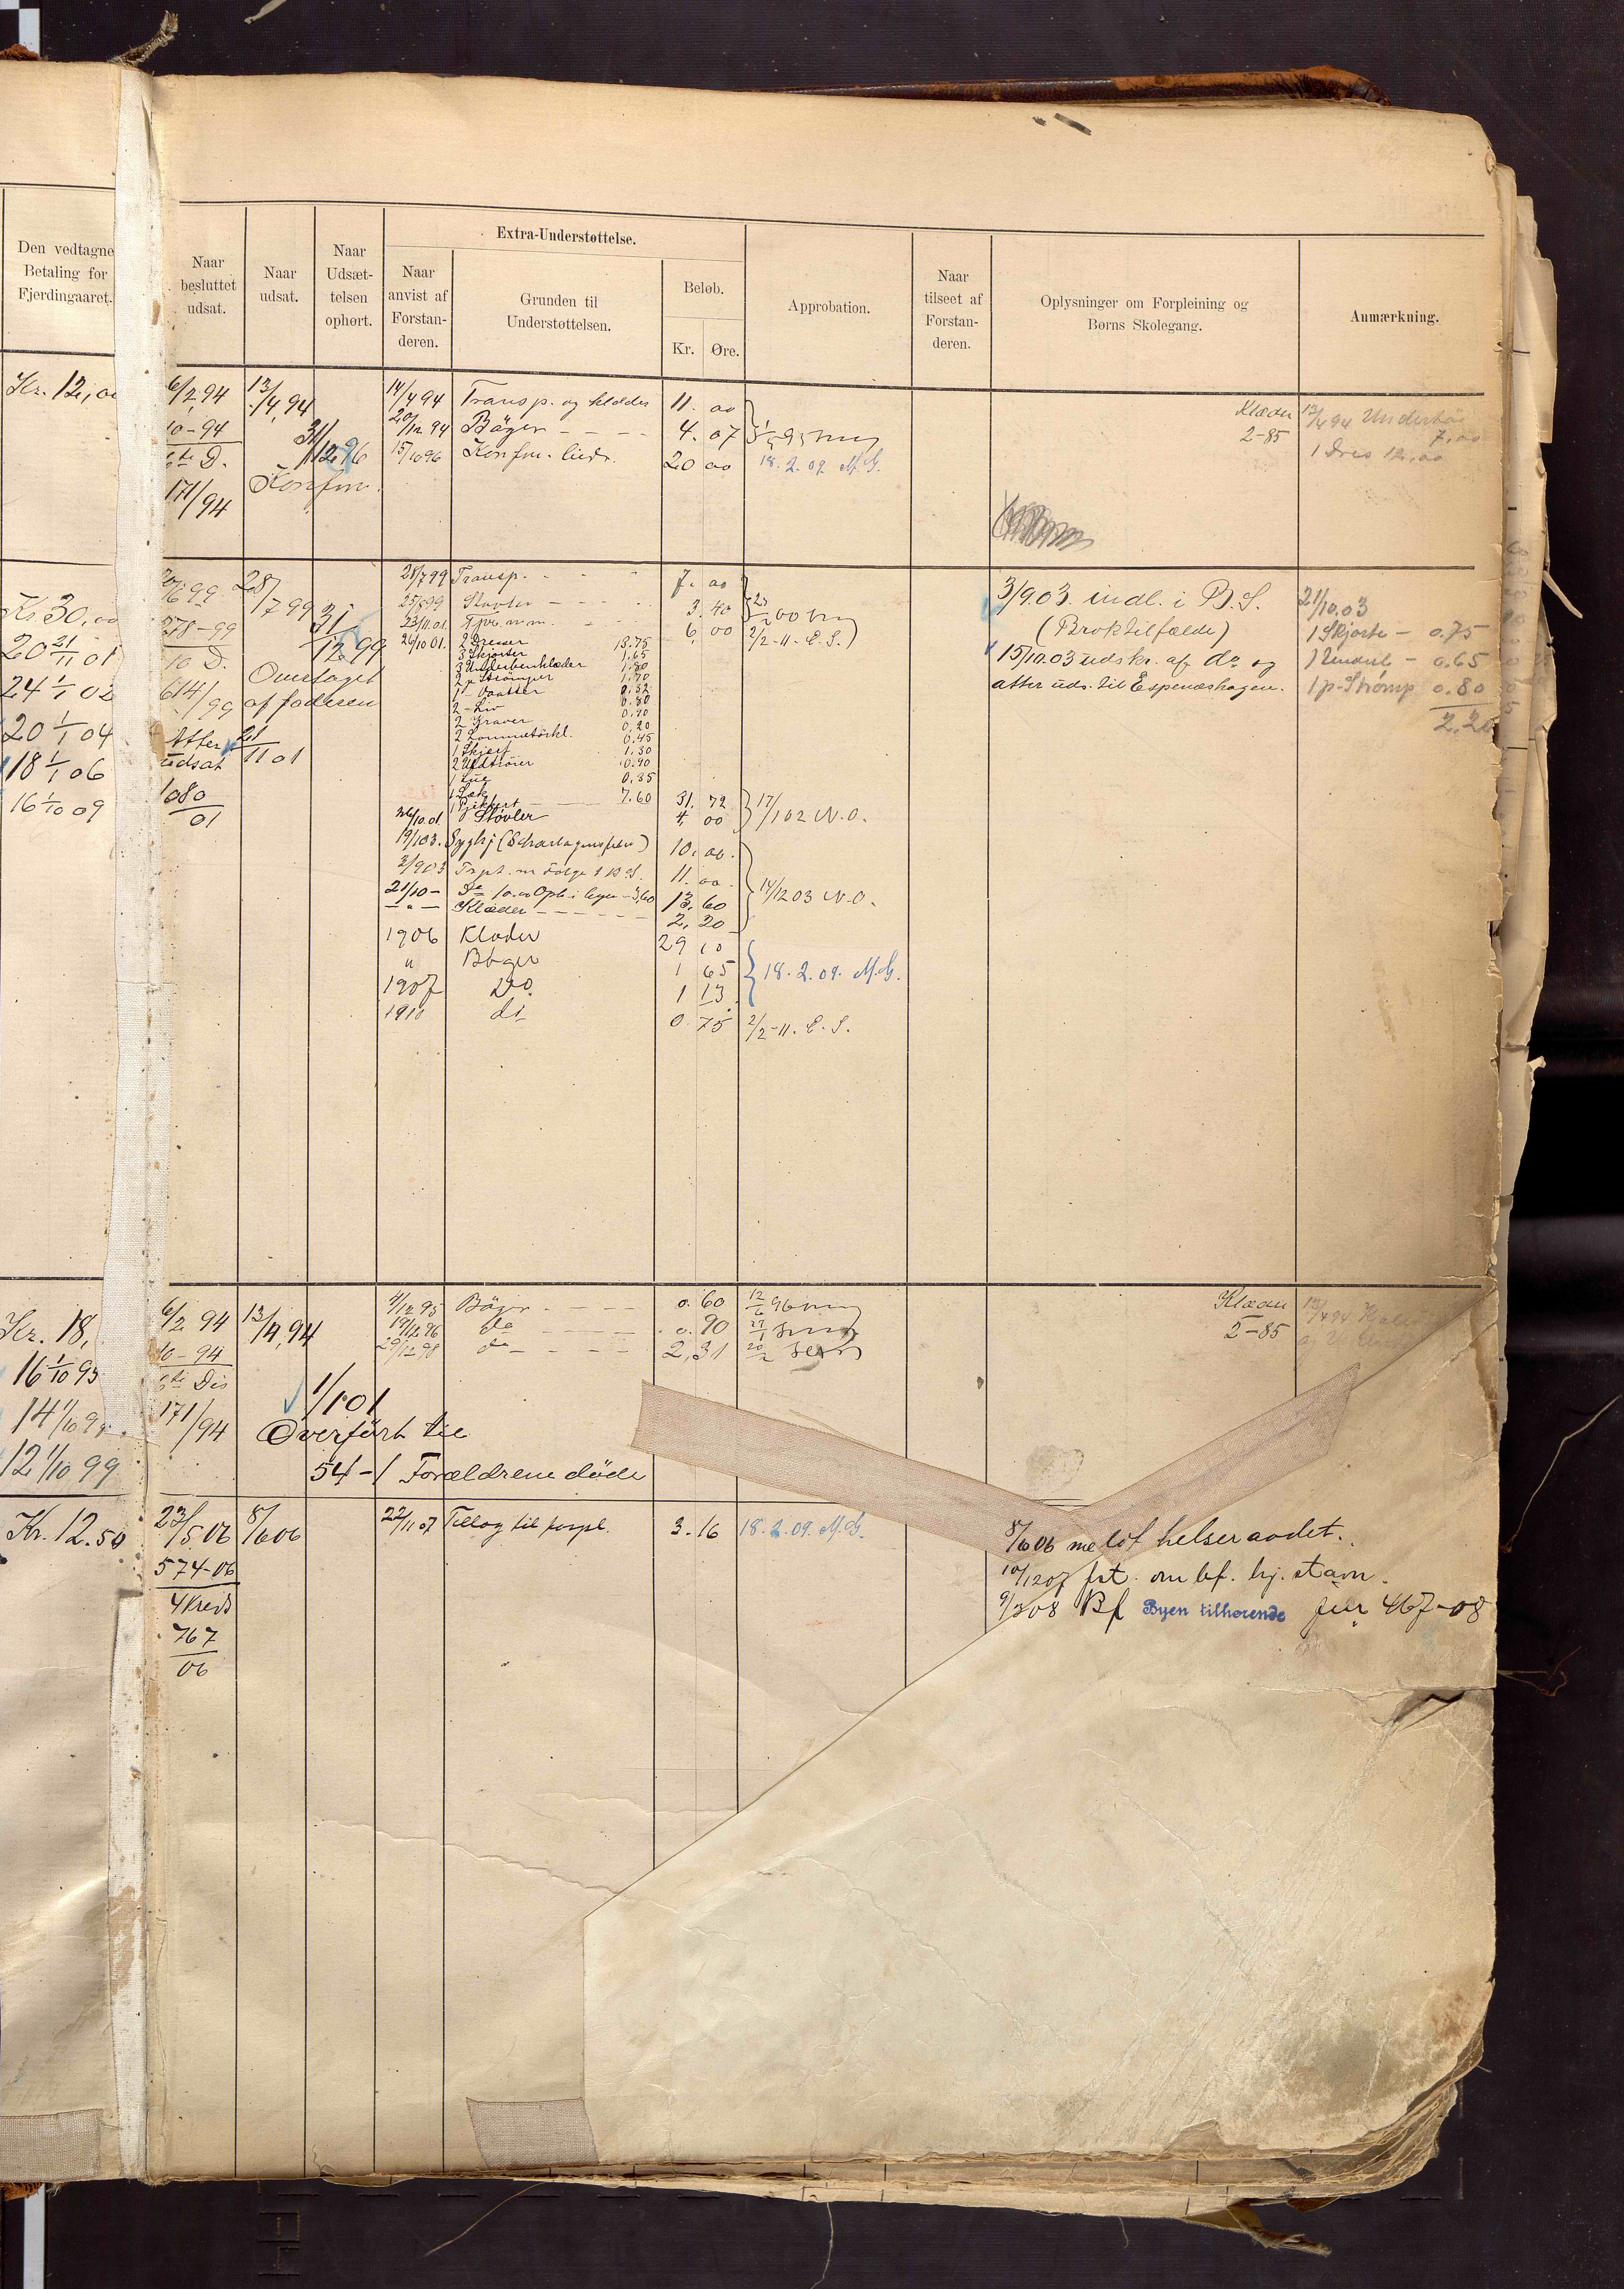 Den vedtagne
Betaling for
Fjerdingaaret.
Naar
besluttet
udsat.
Naar
udsat.
Naar
Udsæt-
telsen
ophørt.
Extra-Understøttelse.
Naar
anvist af
Forstan-
deren.
Grunden til
Understøttelsen.
Beløb.
Kr. Øre.
Approbation.
Naar
tilseet af
Forstan-
deren.
Oplysninger om Forpleining og
Børns Skolegang.
Anmærkning.
Kr. 12,00
6/2 94 13/4 94 14/4 94 Transp. og klæder 11. 00
10-94 20/12 94 Bøger 4. 07
31/12 96 15/10 96 Konfm. 20 00 18. 2. 09 M.G.
6te D.
Konfm.
171/94
Klæder 13/4 94
2-85 7,00
1 Dres 12,00
99 28/7 99 28/7 99 Transp. 7. 00
Kr. 30,00
378-99 31/12 99 25/8 99 Støvler 3. 40
23/11 01. 6. 00 2/2-11. E.S.
20 21/11 01
10 D. 26/10 01 2 Dresser 13.75
3 Skjorter 1,65
3 Underbenklæder 1,80
2 p Strømper 1,70
24 1/1 02
614/99 Overtaget
af faderen
2 Liv 0.80
2 Graver 0,90
2 Lommetørkl. 0,20
1 Skjerf 0.45
2 Uldtrøier 1.30
1 Lue 0.85
1 Sæk
7.60 31. 72 17/1 02 N.O.
20 1/1 04
Atter 21/11 01
udsat
18 1/1 06
1080/01
16 1/10 09
26/10 01 Støvler 4. 00
19/1 03. Syghj (Scharlagensfeber) 10. 00.
3/9 03 Trpt. m følge t B.S. 11. 00.
21/10 – 13. 60 14/12 03 N.O.
– " – Klæder 2. 20
1906 Klæder 29 10
" Bøger 1 65 18. 2. 09. M.G.
1907 Do. 1 13
1910 do 0. 75 2/2-11. E.S.
3/9.03. indl. i B.S.
(Broktilfælde)
15/10.03 udskr. af do og
atter uds. til Espenæshagen.
21/10.03
1 Skjorte – 0.75
1 Underl – 0.65
1 p. Strømp 0.80
2.20
Kr. 18,
6/2 94 13/4 94 4/12 95 Bøger 0. 60
10-94 19/12 96 do 0. 90
29/12 98 do 2,31
16 1/10 95
6te Dis
171/94
14 1/10 9
12 1/10 99
1/1 01
Overført til
54-1 Forældrene døde
Klæder 13/4 94
2-85
Kr. 12.50
23/5.06 8/6 06 22/11 07 Tillæg til forpl. 3. 16 18. 2. 09. M.G.
574-06
4 Kreds
767
06
8/6 06 helseraadet.
10/12 07 frt. om bf. hj. stavn.
9/3 08 Bf Byen tilhørende jur 467-08